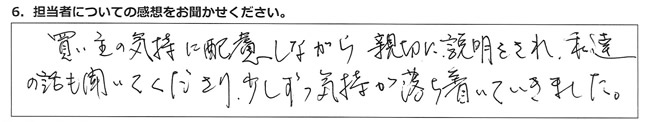 6. 担当者についての感想をお聞かせください。
買い主の気持に配慮しながら 親切に説明をされ、私達
の話も聞いてくださり、少しずつ気持が落ち着いていきました。